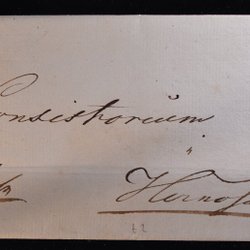 onsistorium
Hernös
t2